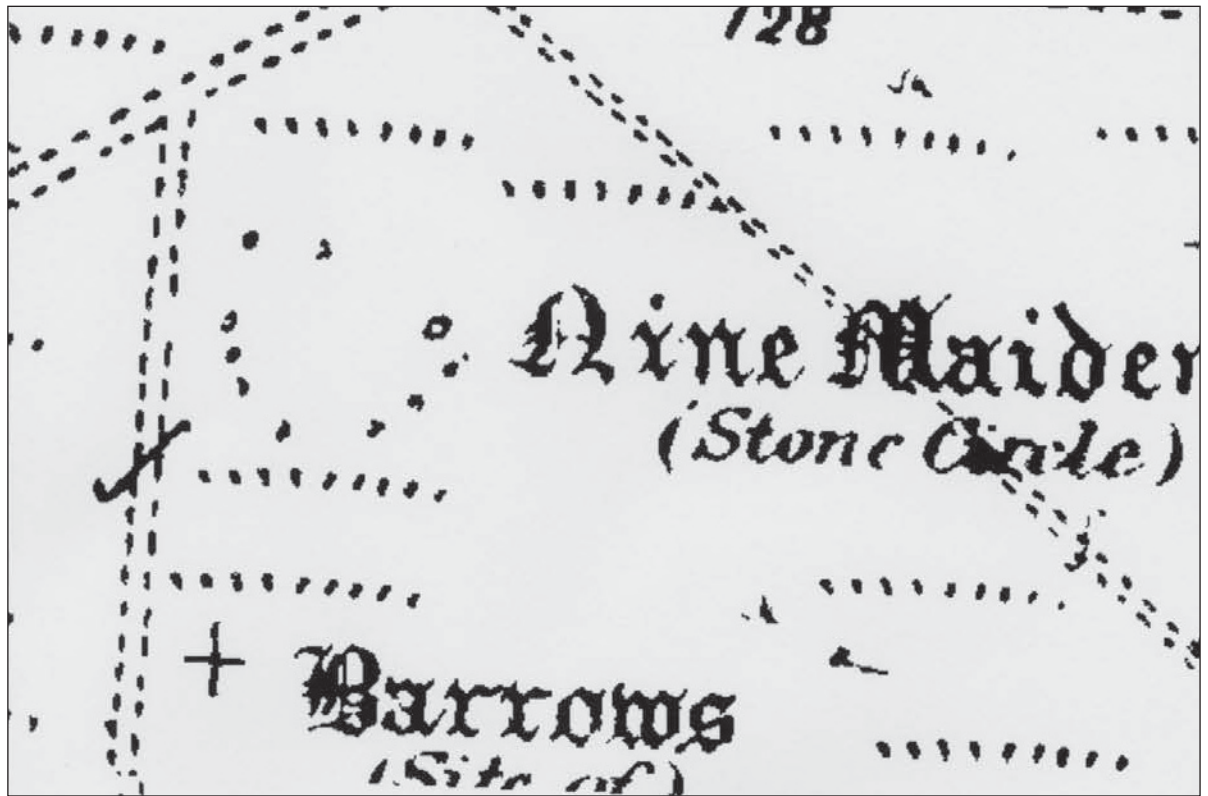 128
Nine Maiden
(Stone Circle)
Barrows
(Site of)